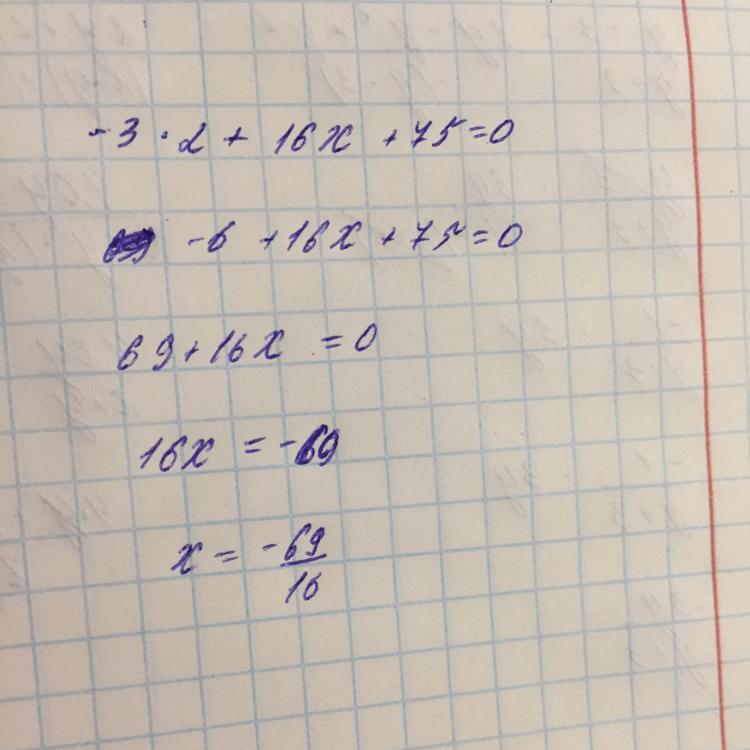 -3 · 2 + 16x + 75 = 0
-6 + 16x + 75 = 0
69 + 16x = 0
16x = -69
x = -69/16